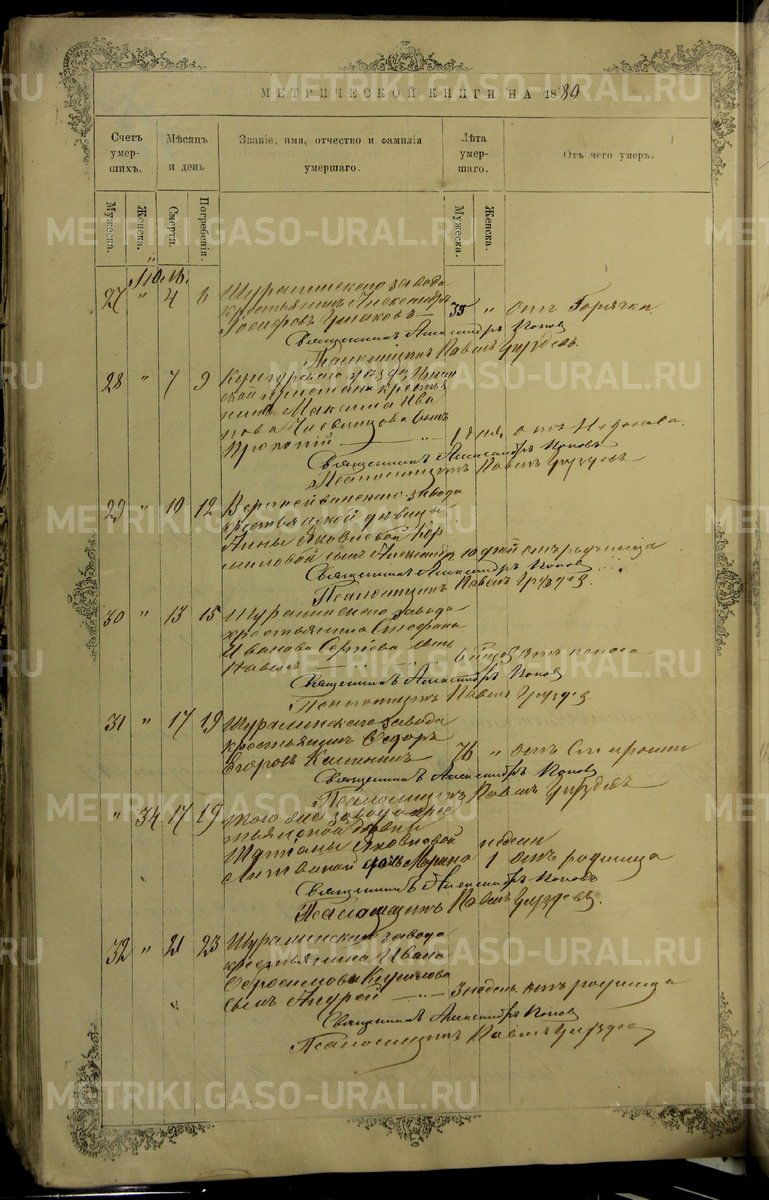 МЕТРИЧЕСКОЙ КНИГИ НА 1889
Счетъ умершихъ.
Мѣсяцъ и день
Званіе, имя, отчество и фамилія умершаго.
Лѣта умершаго.
Отъ чего умеръ.
Мужеска.
Женска.
Смерти.
Погребенія.
Мужеска.
Женска.
Іюль.
27 " 4 6 Шуралинскаго завода
крестьянинъ Александръ
35 " отъ Горячки
Священникъ Александръ Поповъ
Псаломщикъ Павелъ Груздевъ.
28 " 7 9 Кунгурскаго уѣзда
крестьянина Максима Ива
нова сынъ
Прокопій
Священникъ Александръ Поповъ
Псаломщикъ Павелъ Груздевъ
29 " 10 12 Верхнейвинскаго завода
крестьянской дѣвицы
Анны Яковлевой
сынъ Александръ 10 дней отъ родимца
Священникъ Александръ Поповъ
Псаломщикъ Павелъ Груздев.
30 " 13 15 Шуралинскаго завода
крестьянина Стефана
Иванова Сергѣева сынъ
Павелъ 6 отъ поноса
Священникъ Александръ Попов
Псаломщикъ Павелъ Груздев
31 " 17 19 Шуралинскаго завода
крестьянинъ Ѳедоръ
Егоровъ Калининъ 76 " отъ Старости
Священникъ Александръ Попов
Псаломщикъ Павелъ Груздевъ
" 34 17 19 Того же завода крес
тьянской дѣвки
Татіаны Яковлевой недели
дочь Марина 1 отъ родимца
Священникъ Александръ Поповъ
Псаломщикъ Павелъ Груздевъ.
32 " 21 23 Шуралинскаго завода
крестьянина Ивана
сынъ Андрей 3 недель отъ родимца
Священникъ Александръ Попов
Псаломщикъ Павелъ Груздев
METRIKI.GASO-URAL.RU